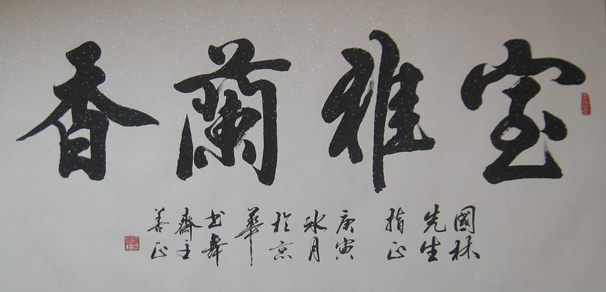 室雅蘭香
國林
先生
指正
庚寅
冰月
於京
華
齋主
善正